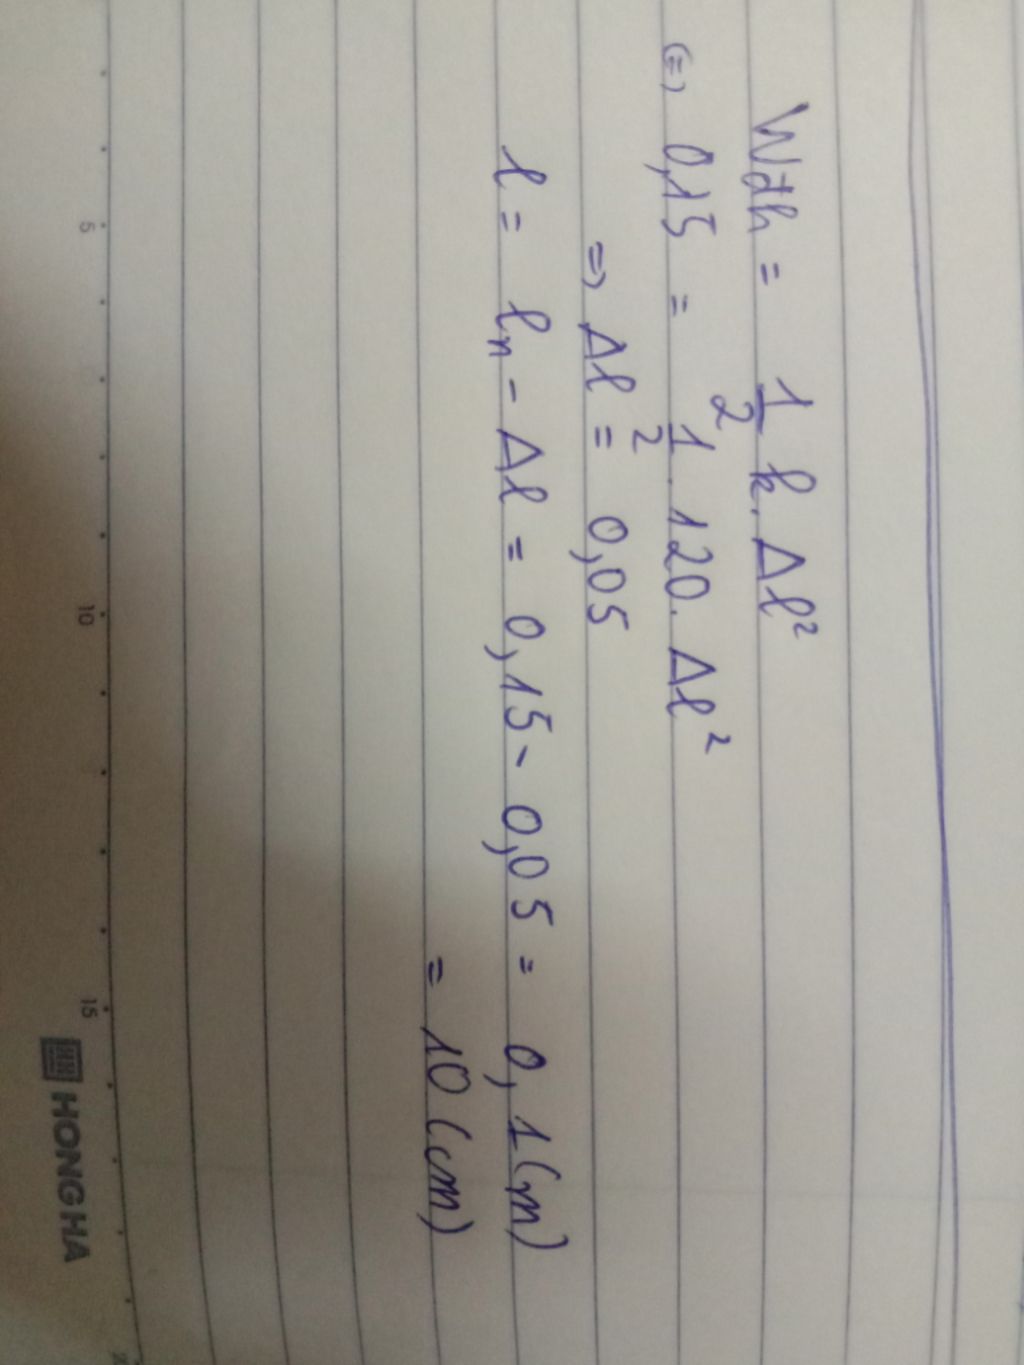 Wđh = 1/2 k. Δl²
(=) 0,15 = 1/2 . 120. Δl²
=) Δl = 0,05
l = ln - Δl = 0,15 - 0,05 = 0,1(m)
= 10 (cm)
5 10 15
HONG HA